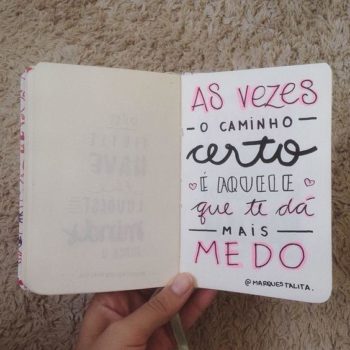 AS VEZES
O CAMINHO
certo
É AQUELE
que te dá
MAIS
MEDO
@MARQUESTALITA.